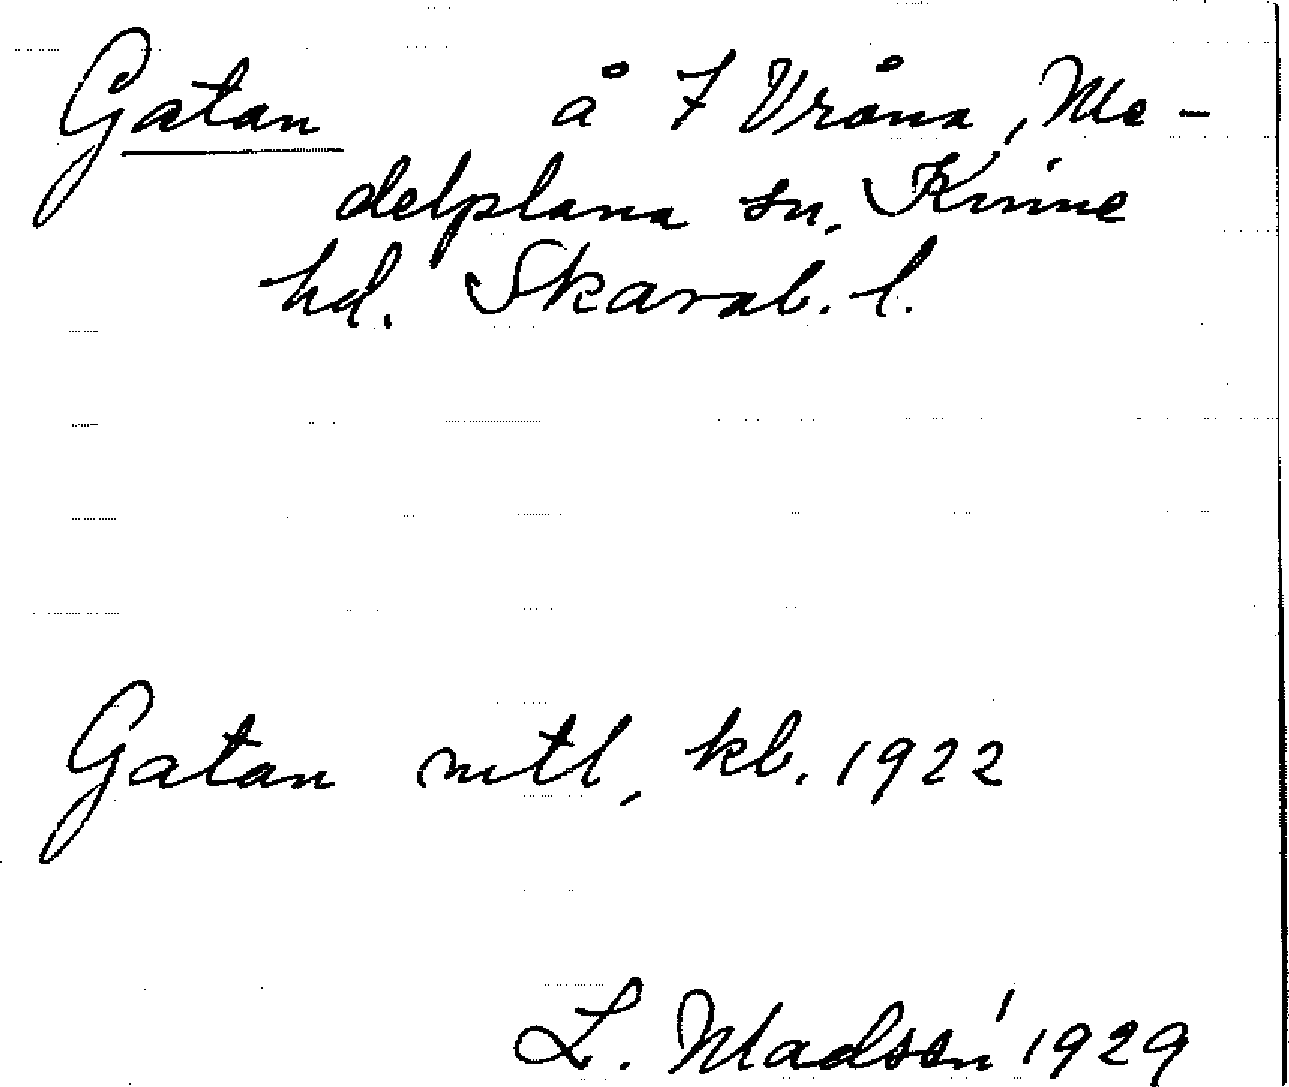 Gatan å 7 Vråna, Me-
delplana sn. Kinne
hd. Skarab. l.
Gatan mtl, kb. 1922
L. Madsén 1929